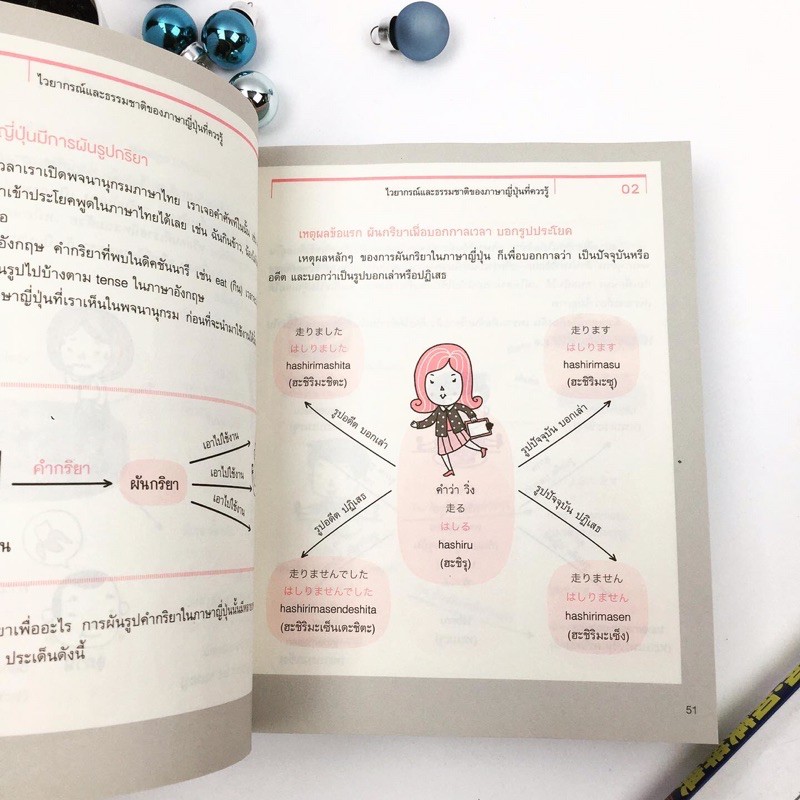 ไวยากรณ์และธรรมชาติของภาษาญี่ปุ่นที่ควรรู้
ญี่ปุ่นมีการผันรูปกริยา
วลาเราเปิดพจนานุกรมภาษาไทย เราเจอคำศัพท์ในนั้น
าเข้าประโยคพูดในภาษาไทยได้เลย เช่น ฉันกินข้าว,
อ
อังกฤษ คำกริยาที่พบในดิคชันนารี เช่น eat (กิน)
นรูปไปบ้างตาม tense ในภาษาอังกฤษ
ษาญี่ปุ่นที่เราเห็นในพจนานุกรม ก่อนที่จะนำมาใช้งานได้
คำกริยา
ผันกริยา
เอาไปใช้งาน
เอาไปใช้งาน
เอาไปใช้งาน
น
ยาเพื่ออะไร การผันรูปคำกริยาในภาษาญี่ปุ่นนั้นมี
ประเด็นดังนี้
ไวยากรณ์และธรรมชาติของภาษาญี่ปุ่นที่ควรรู้ 02
เหตุผลข้อแรก ผันกริยาเพื่อบอกกาลเวลา บอกรูปประโยค
เหตุผลหลักๆ ของการผันกริยาในภาษาญี่ปุ่น ก็เพื่อบอกกาลว่า เป็นปัจจุบันหรือ
อดีต และบอกว่าเป็นรูปบอกเล่าหรือปฏิเสธ
走りました
はしりました
hashirimashita
(ฮะชิริมะชิตะ)
走ります
はしります
hashirimasu
(ฮะชิริมะซุ)
รูปอดีต บอกเล่า
รูปปัจจุบัน บอกเล่า
คำว่า วิ่ง
走る
はしる
hashiru
(ฮะชิรุ)
รูปอดีต ปฏิเสธ
รูปปัจจุบัน ปฏิเสธ
走りませんでした
はしりませんでした
hashirimasendeshita
(ฮะชิริมะเซ็นเดะชิตะ)
走りません
はしりません
hashirimasen
(ฮะชิริมะเซ็ง)
51